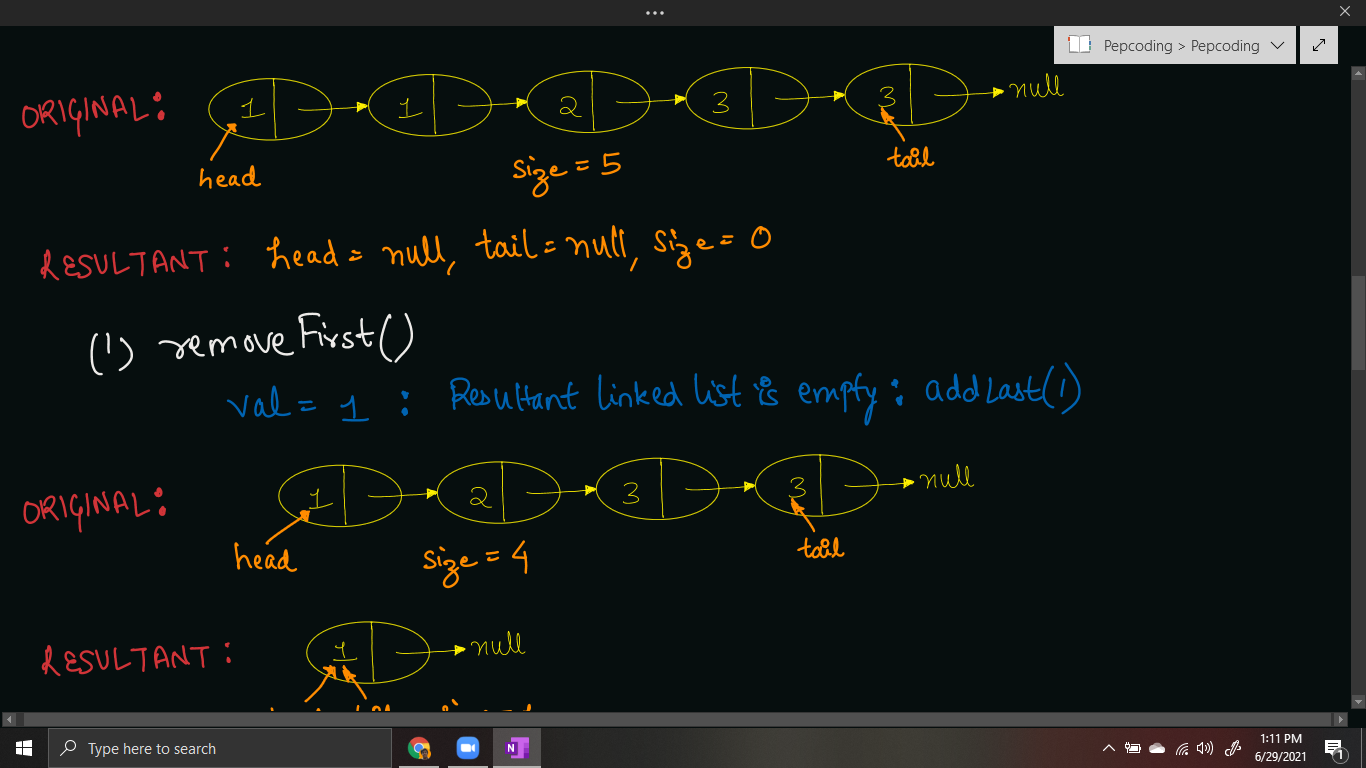 Pepcoding > Pepcoding
ORIGINAL: 1 1 2 3 3 null
head size = 5 tail
RESULTANT: head = null, tail = null, size = 0
(1) removeFirst()
val = 1 : Resultant linked list is empty : addLast(1)
ORIGINAL: 1 2 3 3 null
head size = 4 tail
RESULTANT: 1 null
Type here to search
N
1:11 PM
6/29/2021
1